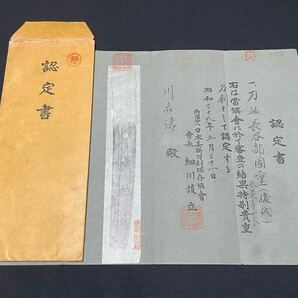 特
認定書
認定書
一、刀 銘 長谷部國重(後代)
右は當協會に於て審査の結果特別貴重
刀剣として認定する
昭和三十九年五月三十一日
財團法人日本美術刀剣保存協會
會長 細川護立
殿